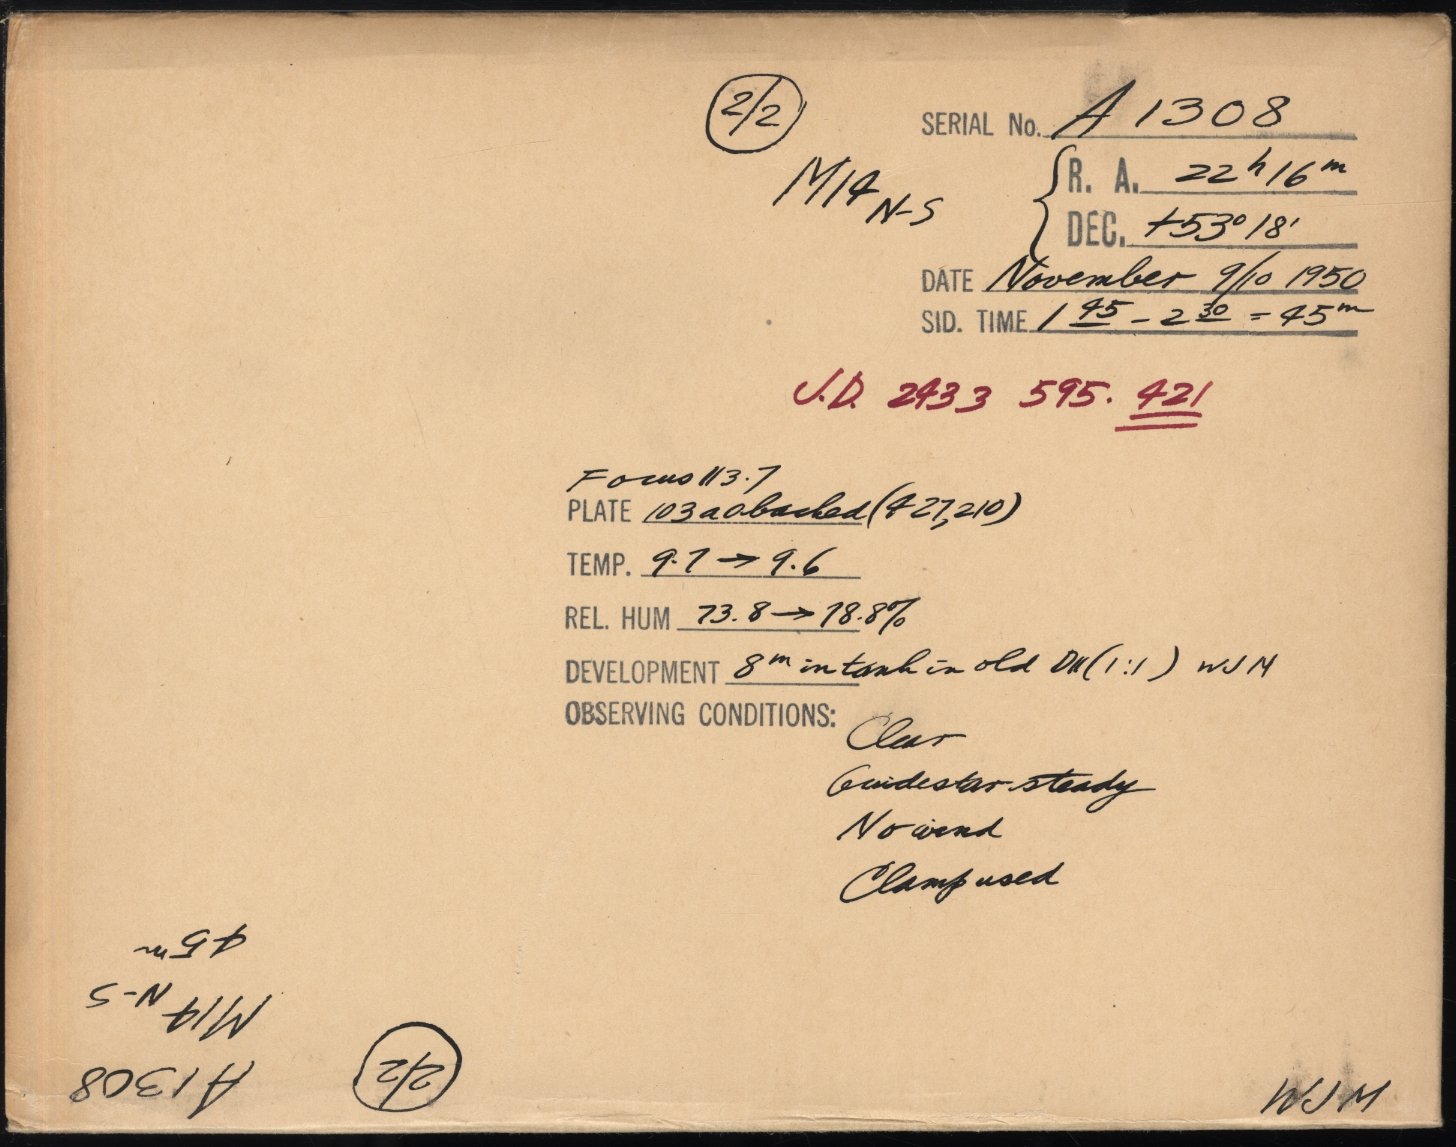 2/2
SERIAL No. A 1308
M14 N-S
R. A. 22h 16m
DEC. +53° 18'
DATE November 9/10 1950
SID. TIME 1 45 - 2 30 = 45m
J.D. 2433 595. 421
Focus 113.7
PLATE 103aO backed (427,210)
TEMP. 9.7 → 9.6
REL. HUM 73.8 → 78.8%
DEVELOPMENT 8m in tank in old D11 (1:1) WJM
OBSERVING CONDITIONS:
Clear
Guidestar steady
No wind
Clamp used
45m
M14 N-S
A1308
2/2
WJM